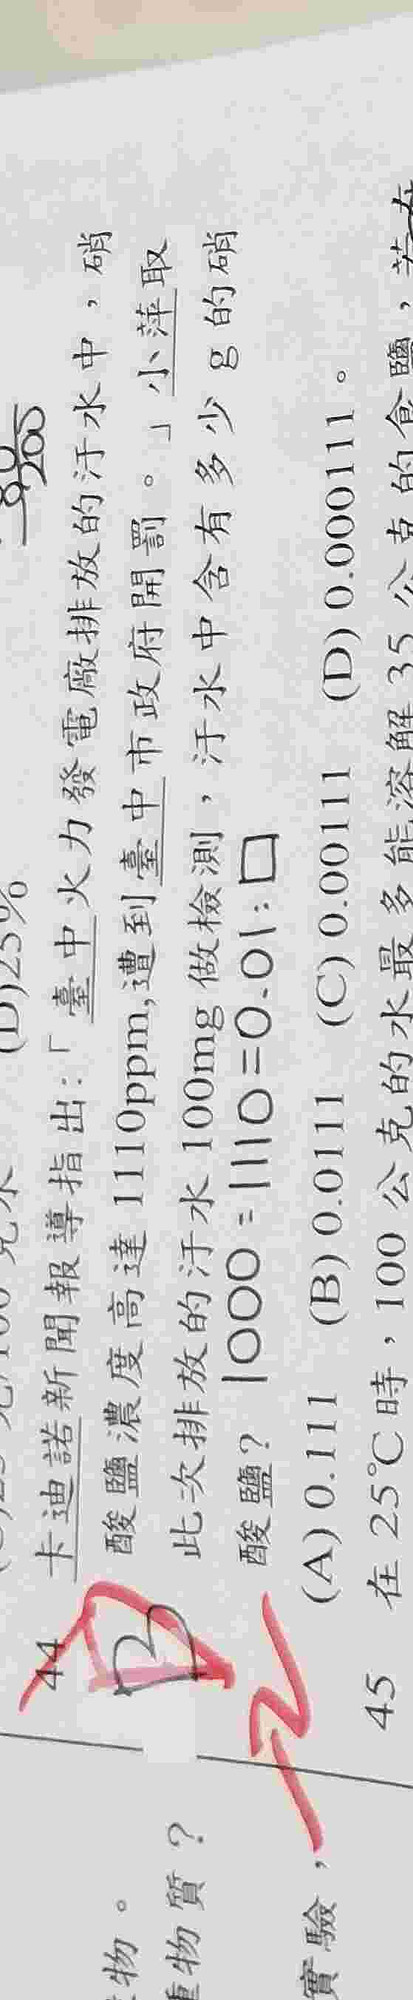 (D)25%
200
44 卡迪諾新聞報導指出:「臺中火力發電廠排放的汙水中，硝
酸鹽濃度高達 1110ppm,遭到臺中市政府開罰。」小萍取
此次排放的汙水 100mg 做檢測，汙水中含有多少 g 的硝
酸鹽? 1000 = 1110=0.01:□
(A) 0.111 (B) 0.0111 (C) 0.00111 (D) 0.000111。
B
-2
45 在 25℃時，100 公克的水最多能溶解 35 公克的食鹽，若在
物。
重物質？
實驗，